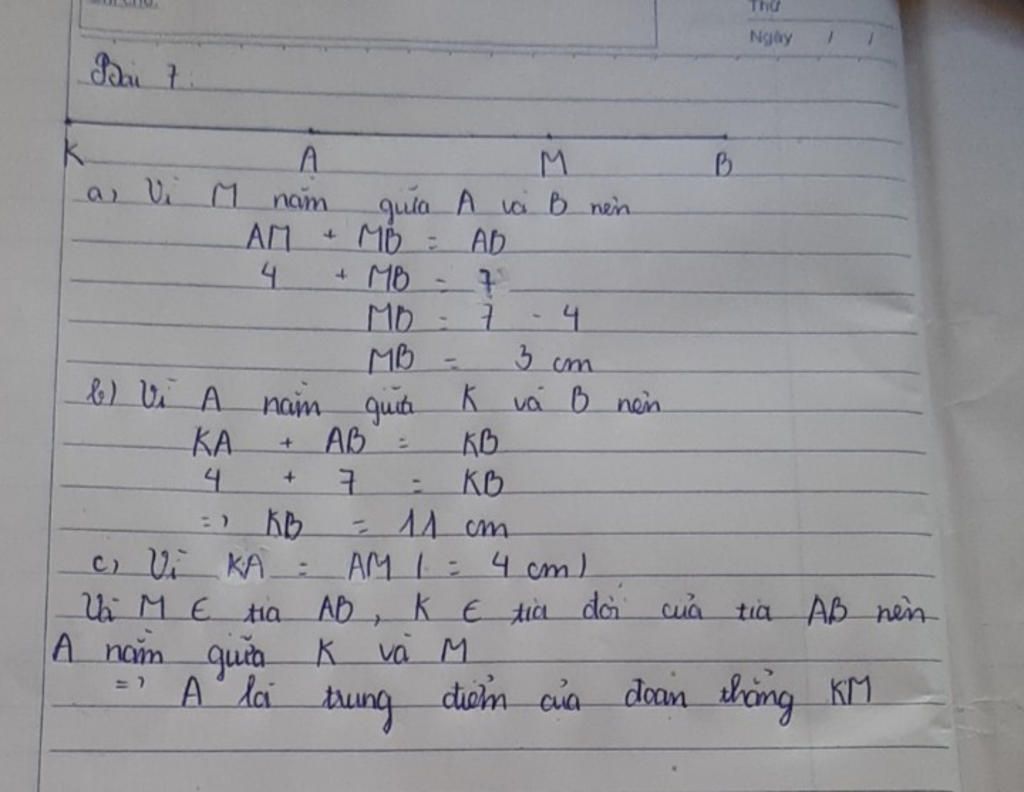 Thứ
Ngày / /
Bài 7:
K A M B
a) Vì M nằm giữa A và B nên
AM + MB = AB
4 + MB = 7
MB = 7 - 4
MB = 3 cm
b) Vì A nằm giữa K và B nên
KA + AB = KB
4 + 7 = KB
=> KB = 11 cm
c) Vì KA = AM ( = 4 cm)
Và M ∈ tia AB, K ∈ tia đối của tia AB nên
A nằm giữa K và M
=> A là trung điểm của đoạn thẳng KM